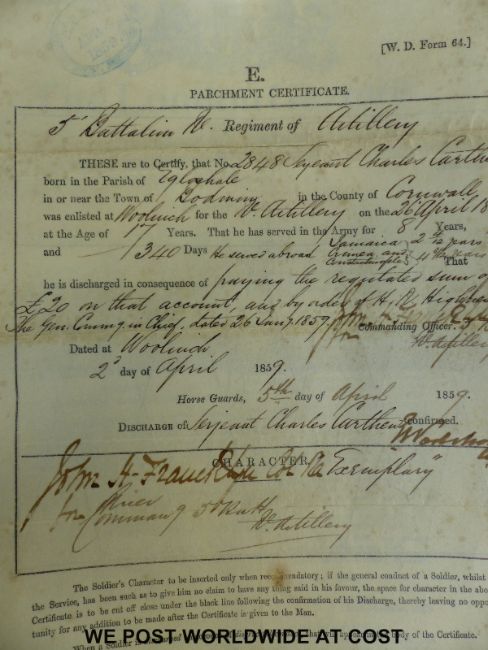 [W. D. Form 64.]
E.
PARCHMENT CERTIFICATE.
5th Battalion Rl. Regiment of Artillery
THESE are to Certify, that No. 2848 Serjeant Charles
born in the Parish of Egloshale
in or near the Town of Bodmin in the County of Cornwall
was enlisted at Woolwich for the Rl. Artillery on the 26 April 18
at the Age of 17 Years. That he has served in the Army for 8 Years,
and 340 Days He served abroad Jamaica 2 years
Crimea and Constantinople years That
he is discharged in consequence of paying the regulated sum of
£20 on that account, and by order of H. R. Highness
The Gen. Commg in Chief, dated 26 Jany. 1859.
Commanding Officer.
Rl. Artillery
Dated at Woolwich
2d day of April 1859.
Horse Guards, 5th day of April 1859.
DISCHARGE of Serjeant Charles confirmed.
CHARACTER.
John H. Col. Exemplary
Commang 5th Batt
Rl. Artillery
The Soldier's Character to be inserted only when recommendatory; if the general conduct of a Soldier, whilst
the Service, has been such as to give him no claim to have any thing said in his favour, the space for character in the abo
Certificate is to be cut off close under the black line following the confirmation of his Discharge, thereby leaving no oppo
tunity for any addition to be made after the Certificate is given to the Man.
WE POST WORLDWIDE AT COST
body of the Certificate.